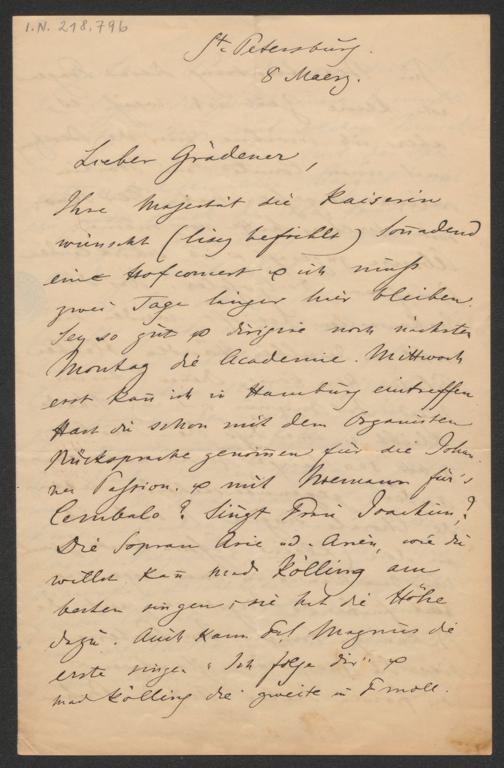 I.N. 218.796
St. Petersburg.
8 Maerz.
Lieber Grädener,
Ihre Majestät die Kaiserin
wünscht (lies befiehlt) Sonnabend
eine Hofconcert & ich muß
zwei Tage länger hier bleiben.
Sey so gut & dirigire noch nächsten
Montag die Academie. Mittwoch
erst kan̄ ich in Hamburg eintreffen
Hast du schon mit dem Organisten
Rücksprache genom̄en für die Johan-
nes Passion. & mit für's
Cembalo? Singt Frau Joachim?
Die Sopran Arie od. Arien, wie du
willst kan̄ Mad Kölling am
besten singen, sie hat die Höhe
dazu. Auch kann Frl. Magnus die
erste singen "Ich folge dir" &
Mad Kölling die zweite in F moll.